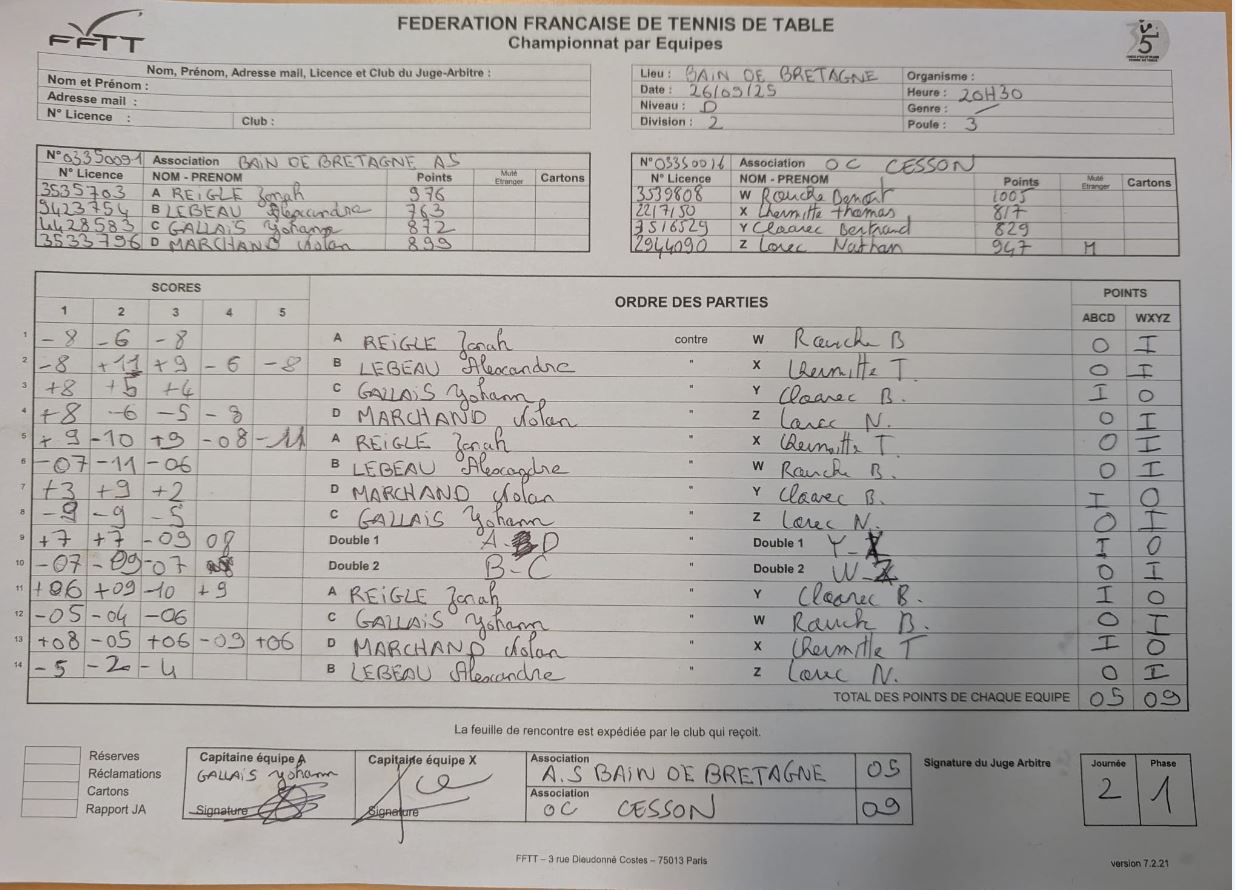 FFTT
FEDERATION FRANCAISE DE TENNIS DE TABLE
Championnat par Equipes
Nom, Prénom, Adresse mail, Licence et Club du Juge-Arbitre :
Nom et Prénom :
Adresse mail :
N° Licence : Club :
Lieu : BAIN DE BRETAGNE Organisme :
Date : 26/09/25 Heure : 20H30
Niveau : D Genre :
Division : 2 Poule : 3
N° 03350091 Association BAIN DE BRETAGNE AS
N° Licence NOM - PRENOM Points Muté Etranger Cartons
3535703 A REIGLE Jonah 976
9423754 B LEBEAU Alexandre 763
4428583 C GALLAIS Yohann 872
3533796 D MARCHAND Nolan 899
N° 03350016 Association OC CESSON
N° Licence NOM - PRENOM Points Muté Etranger Cartons
3539808 W Rauche Benoit 1005
2217150 X Lhermitte thomas 817
3516529 Y Cloarec Bertrand 829
2944090 Z Lorec Nathan 947 M
SCORES ORDRE DES PARTIES POINTS
1 2 3 4 5 ABCD WXYZ
1 -8 -6 -8 A REIGLE Jonah contre W Rauche B 0 I
2 -8 +11 +9 -6 -8 B LEBEAU Alexandre " X Lhermitte T. 0 I
3 +8 +5 +4 C GALLAIS Yohann " Y Cloarec B. I 0
4 +8 -6 -5 -8 D MARCHAND Nolan " Z Lorec N. 0 I
5 +9 -10 +9 -08 -11 A REIGLE Jonah " X Lhermitte T. 0 I
6 -07 -11 -06 B LEBEAU Alexandre " W Rauche B. 0 I
7 +3 +9 +2 D MARCHAND Nolan " Y Cloarec B. I 0
8 -9 -9 -5 C GALLAIS Yohann " Z Lorec N. 0 I
9 +7 +7 -09 08 Double 1 A- D Double 1 Y- I 0
10 -07 -09 -07 Double 2 B-C " Double 2 W- 0 I
11 +06 +09 -10 +9 A REIGLE Jonah " Y Cloarec B. I 0
12 -05 -04 -06 C GALLAIS Yohann " W Rauch B. 0 I
13 +08 -05 +06 -09 +06 D MARCHAND Nolan " X Lhermitte T I 0
14 -5 -2 -4 B LEBEAU Alexandre " Z Lorec N. 0 I
TOTAL DES POINTS DE CHAQUE EQUIPE 05 09
La feuille de rencontre est expédiée par le club qui reçoit.
Réserves
Réclamations
Cartons
Rapport JA
Capitaine équipe A
GALLAIS Yohann
Signature
Capitaine équipe X
Signature
Association
A.S BAIN DE BRETAGNE 05
Association
OC CESSON 09
Signature du Juge Arbitre
Journée Phase
2 1
FFTT – 3 rue Dieudonné Costes – 75013 Paris
version 7.2.21